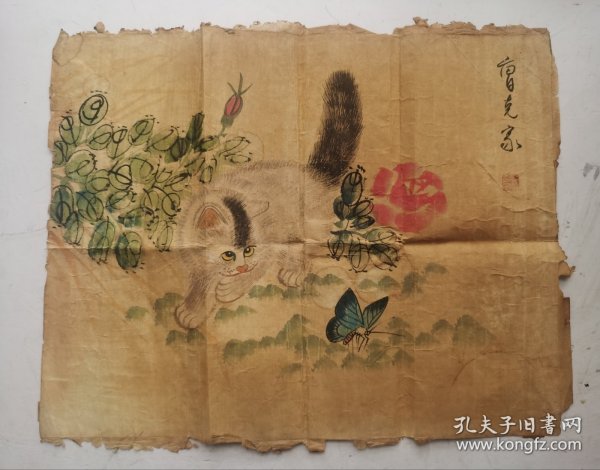 曹克家
孔夫子旧书网
www.kongfz.com